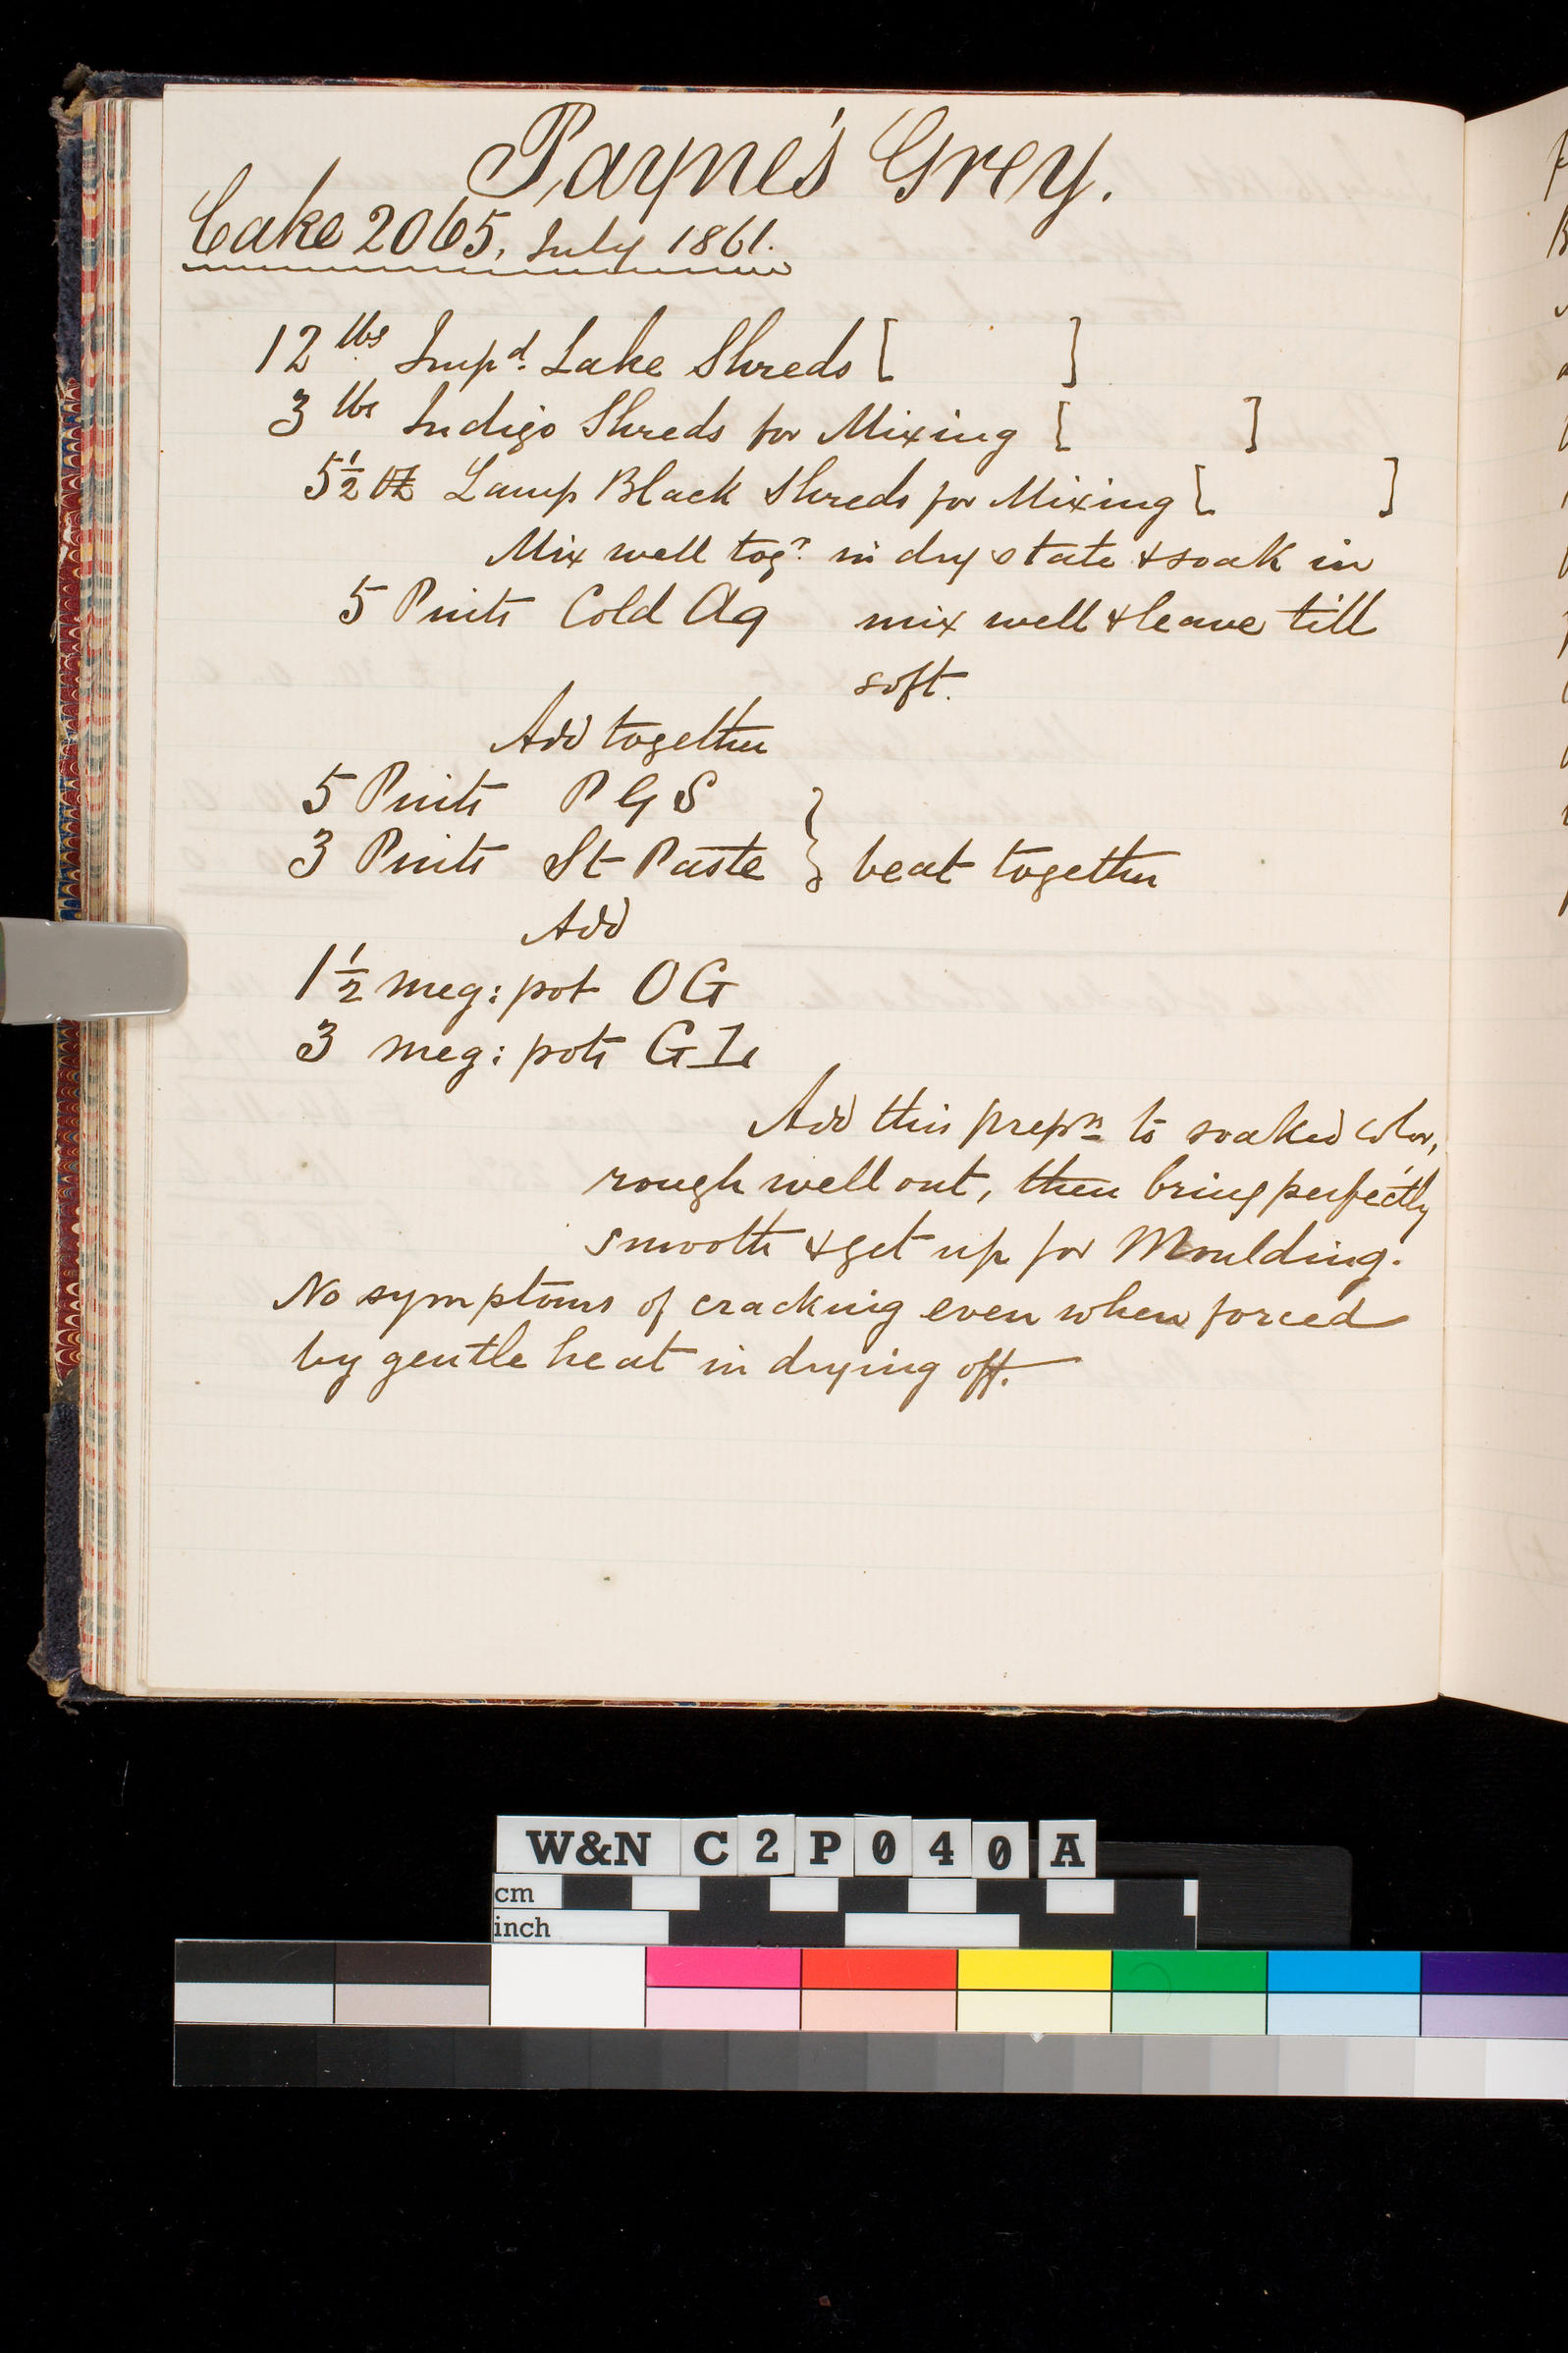 Payne's Grey.
Cake 2065, July 1861.
12 lbs Imp d. Lake Shreds [ ]
3 lbs Indigo Shreds for Mixing [ ]
5½ oz Lamp Black Shreds for Mixing [ ]
Mix well tog r. in dry state & soak in
5 Pints Cold Aq mix well & leave till
soft.
Add together
5 Pints P G S
3 Pints St Paste } beat together
Add
1½ meg: pot O G
3 meg: pots G
Add this prep n to soaked color,
rough well out, then bring perfectly
smooth & get up for Moulding.
No symptoms of cracking even when forced
by gentle heat in drying off.
W&N C2P040 A
cm
inch